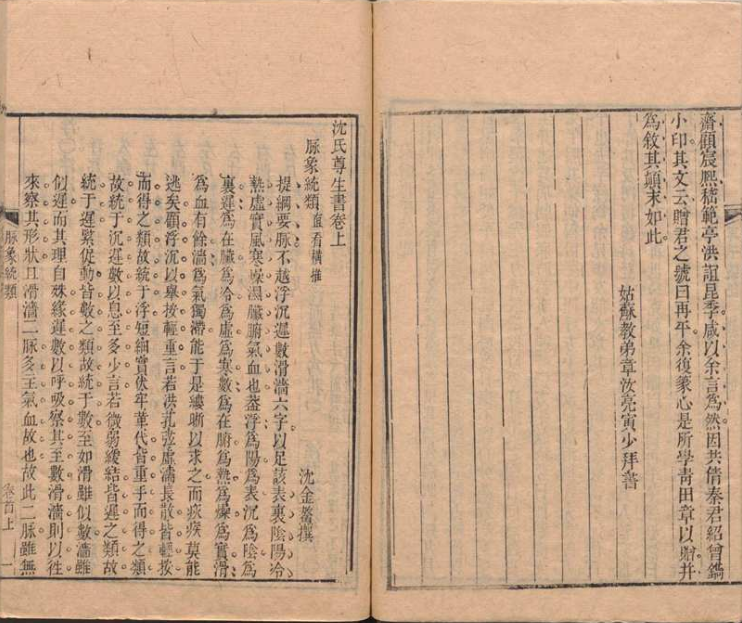 齋顧宸熙嵇範亭洪誼昆季咸以余言爲然因共倩秦君紹曾鐫
小印其文云贈君之號曰再平余復篆心是所學靑田章以贈并
爲敘其顛末如此
姑蘇教弟章汝亮寅少拜書
沈氏尊生書卷上
沈金鰲撰
脉象統類直看橫推
提綱要脉不越浮沉遲數滑濇六字以足該表裏陰陽冷
熱虛實風寒燥濕臟腑氣血也葢浮爲陽爲表沉爲陰爲
裏遲爲在臟爲冷爲虛爲寒數爲在腑爲熱爲燥爲實滑
爲血有餘濇爲氣獨滯能于是縷晰以求之而痰疾莫能
逃矣顧浮沉以舉按輕重言若洪芤弦虛濡長散皆輕按
而得之類故統于浮短細實伏牢革代皆重手而得之類
故統于沉遲數以息至多少言若微弱緩結皆遲之類故
統于遲緊促動皆數之類故統于數至如滑雖似數濇雖
似遲而其理自殊緣遲數以呼吸察其至數滑濇則以往
來察其形狀且滑濇二脉多主氣血故也故此二脉雖無
脉象統類
卷首上
一